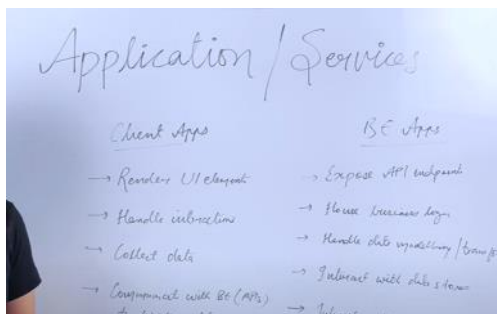 Application / Services
Client Apps
→ Renders UI elements
→ Handle interactions
→ Collect data
→ Communicat with BE (APIs)
BE Apps
→ Expose API endpoints
→ House business logic
→ Handle data modelling /
→ Interact with data stores
→